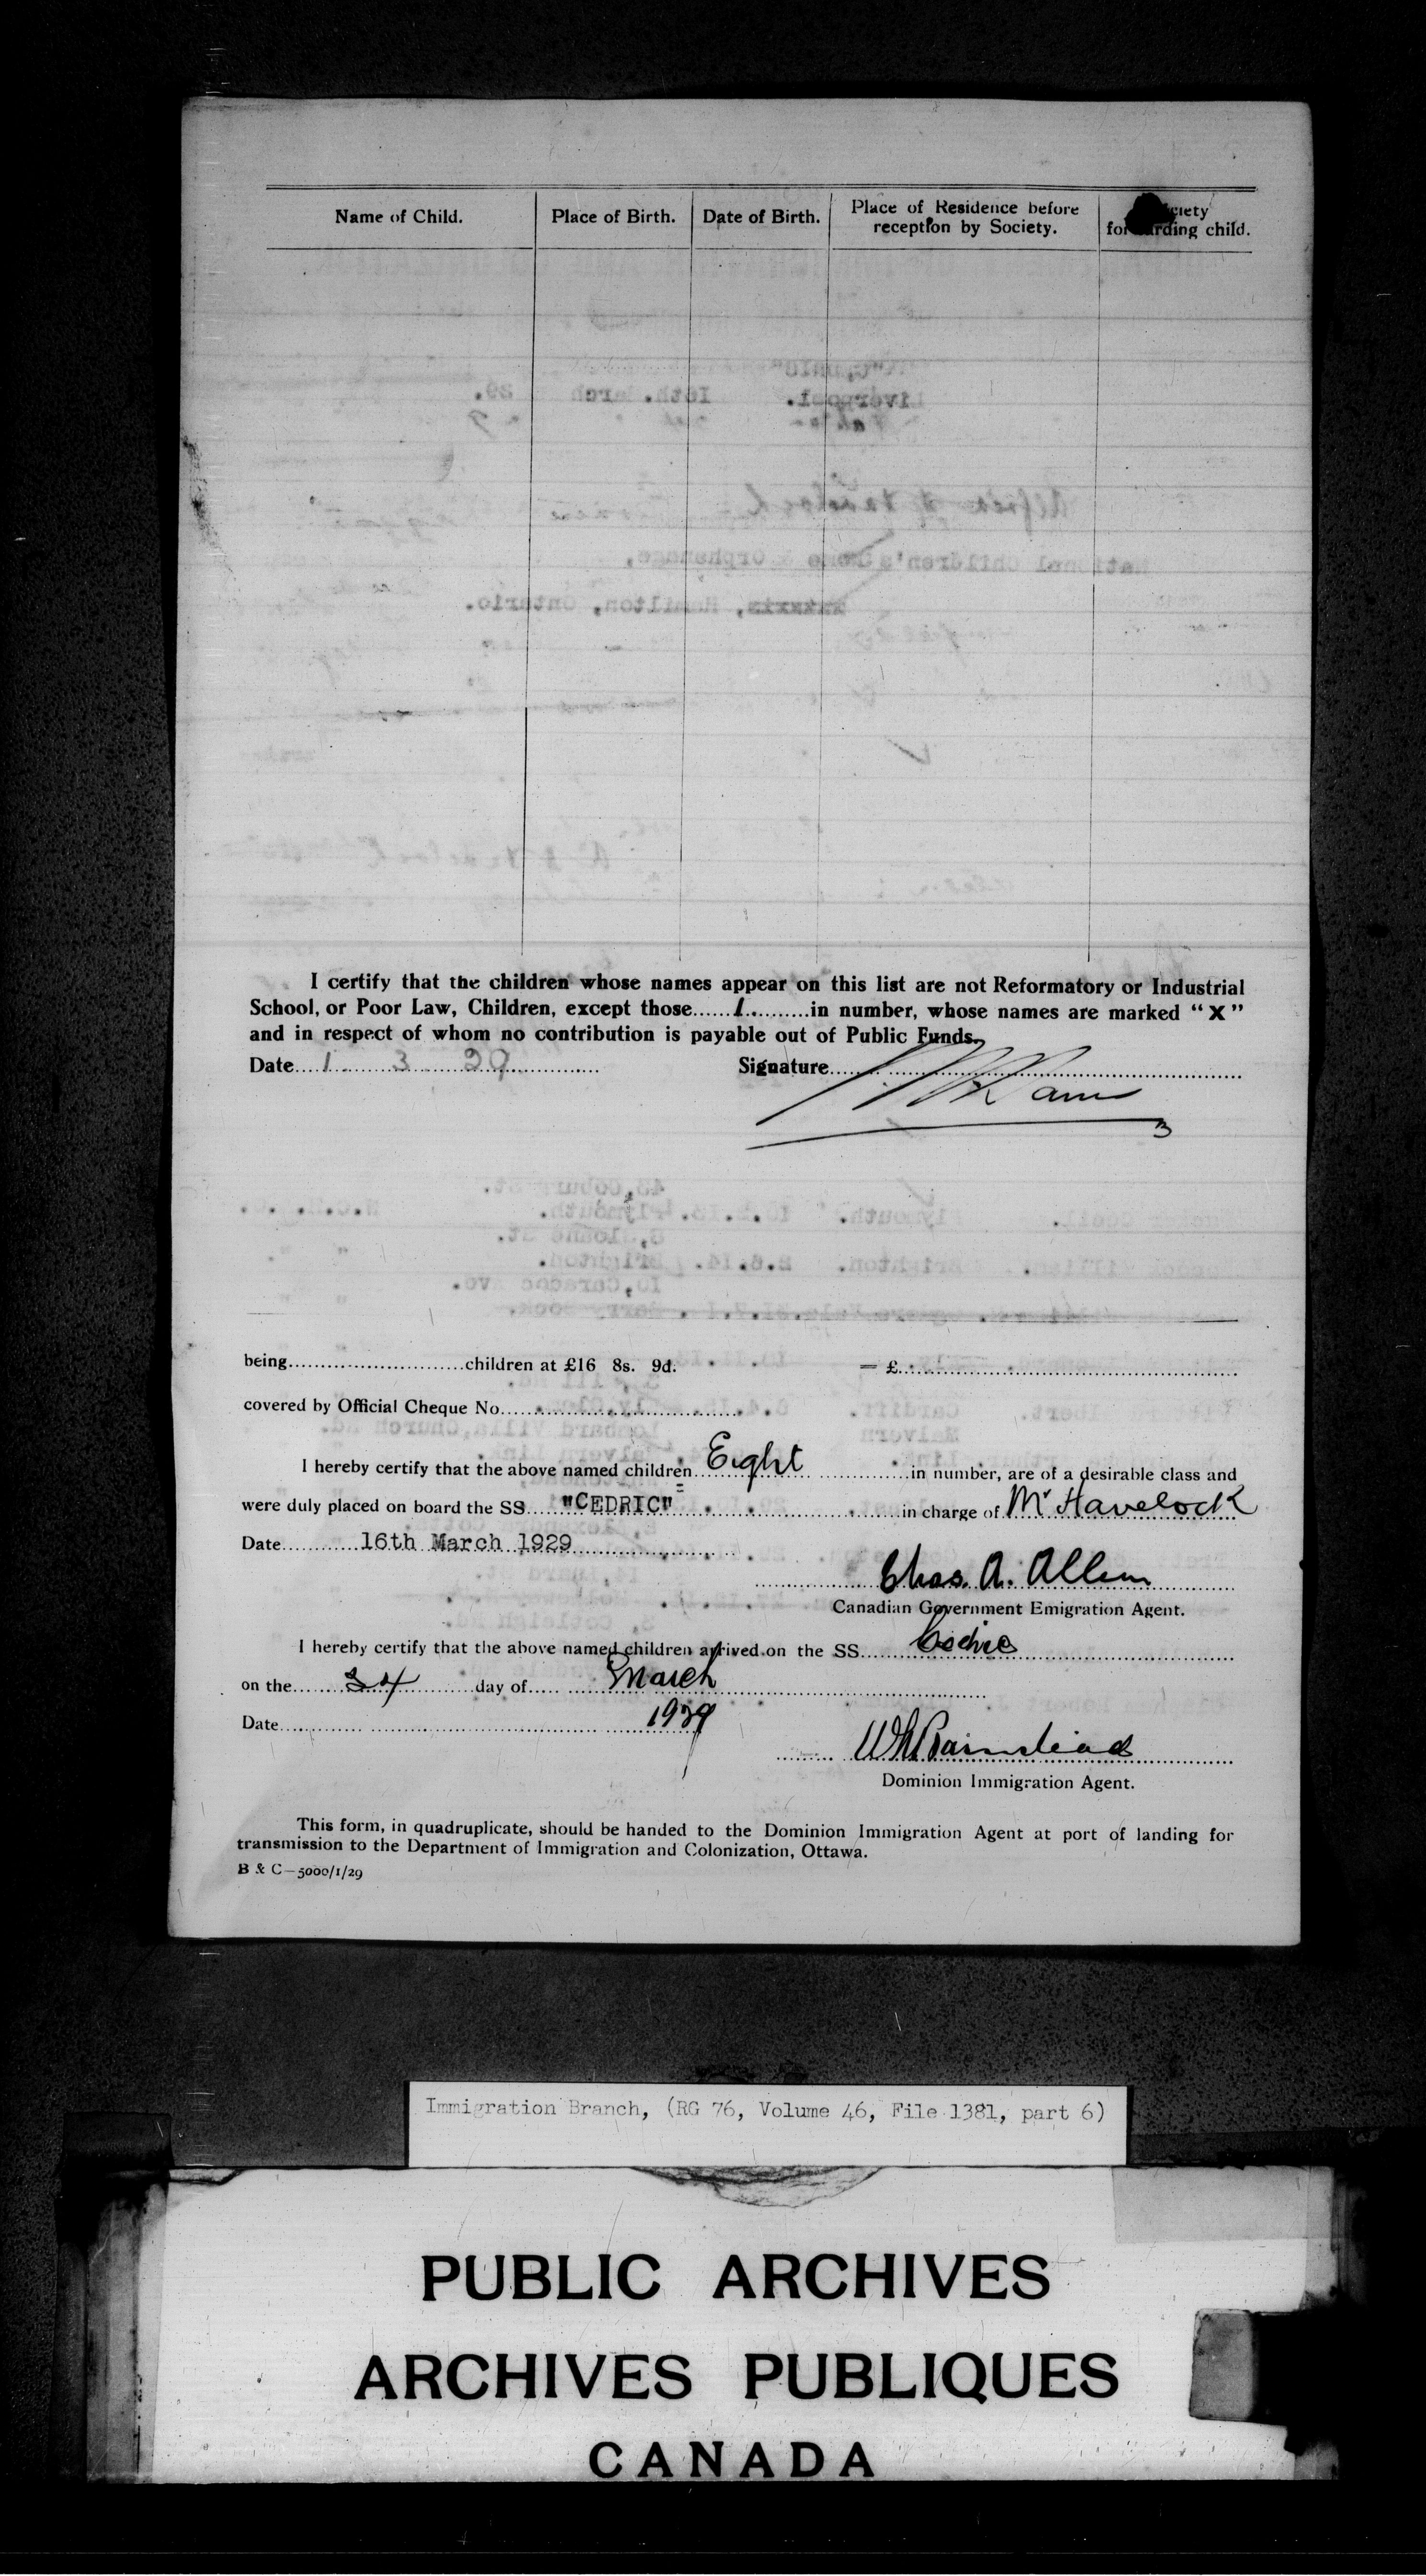 Name of Child. Place of Birth. Date of Birth. Place of Residence before reception by Society. forwarding child.
I certify that the children whose names appear on this list are not Reformatory or Industrial
School, or Poor Law, Children, except those......1..........in number, whose names are marked “X”
and in respect of whom no contribution is payable out of Public Funds.
Date....1....3....29.... Signature....
being..............................children at £16 8s. 9d. = £..............................
covered by Official Cheque No..............................
I hereby certify that the above named children Eight ..............in number, are of a desirable class and
were duly placed on board the SS....."CEDRIC"..............................in charge of Mr Havelock
Date............16th March 1929..............................
Chas. A. Allen
Canadian Government Emigration Agent.
I hereby certify that the above named children arrived on the SS.......Cedric
on the.......24..........day of..... March
Date.............. 1929
Dominion Immigration Agent.
This form, in quadruplicate, should be handed to the Dominion Immigration Agent at port of landing for
transmission to the Department of Immigration and Colonization, Ottawa.
B & C—5000/1/29
Immigration Branch, (RG 76, Volume 46, File 1381, part 6)
PUBLIC ARCHIVES
ARCHIVES PUBLIQUES
CANADA